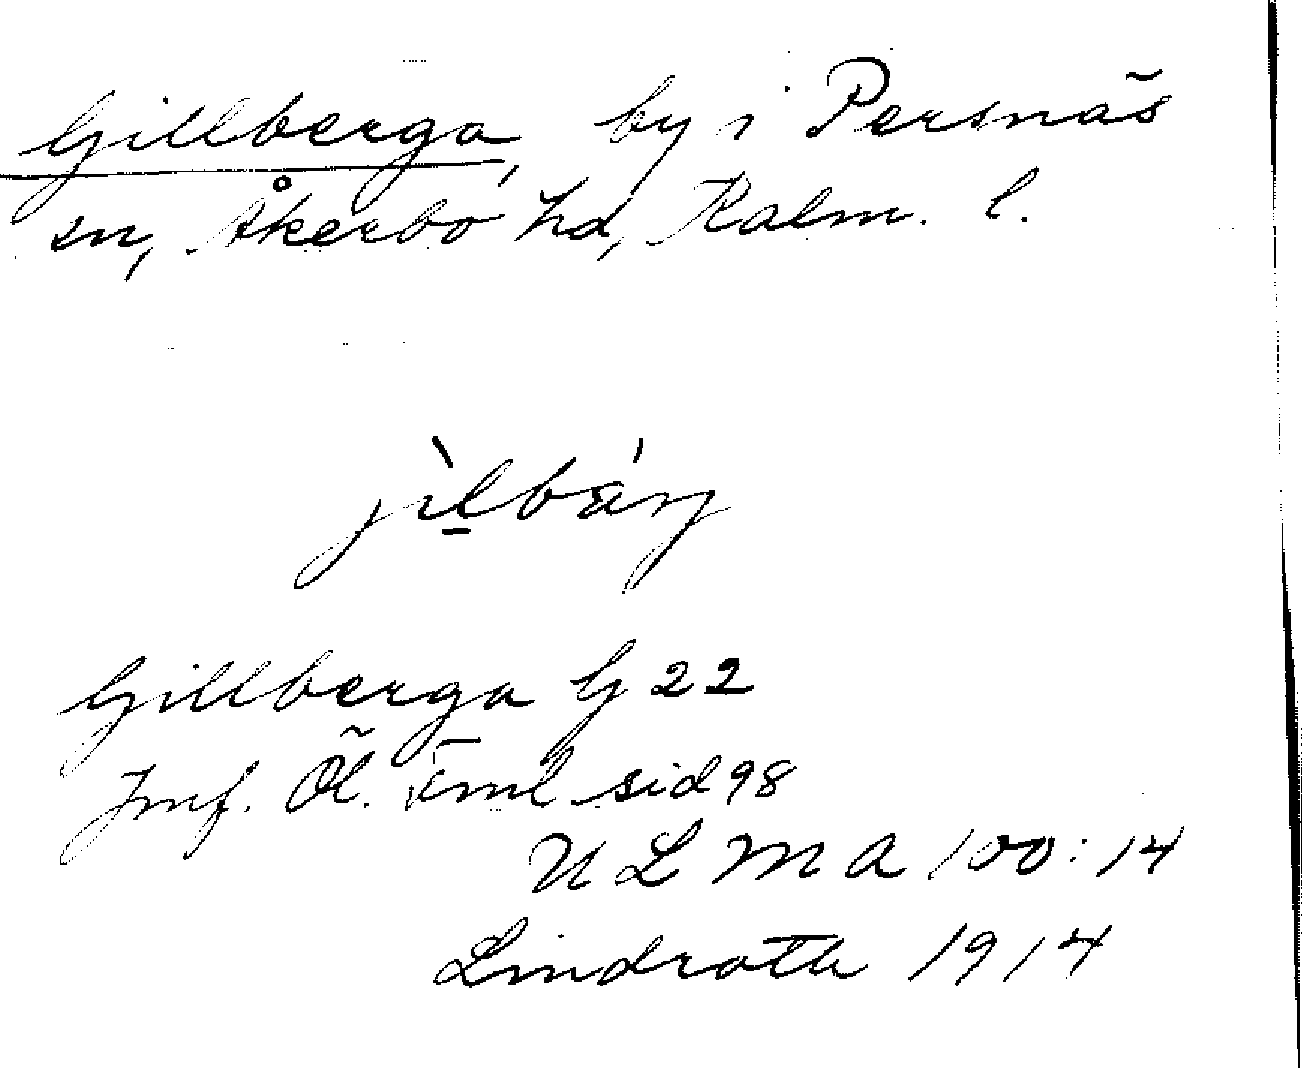 Gillberga, by i Persnäs
sn, Åkerbo hd, Kalm. l.
jìlbárj
Gillberga G 22
Jmf. Öl. sid 98
ULMA 100:14
Lindroth 1914